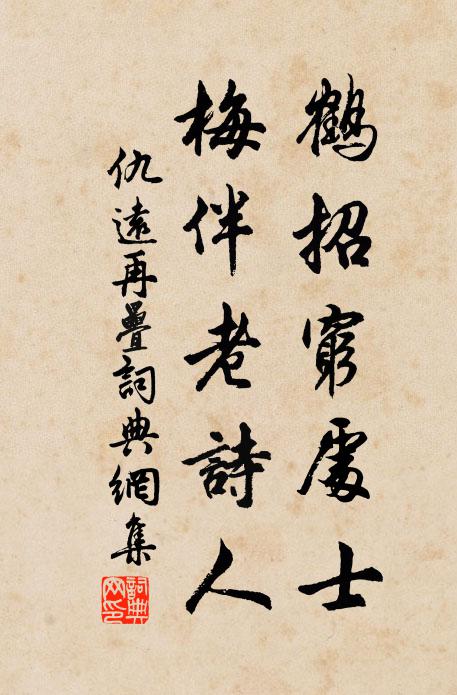 鶴招窮處士
梅伴老詩人
仇遠再疊詞典網集
詞典網印